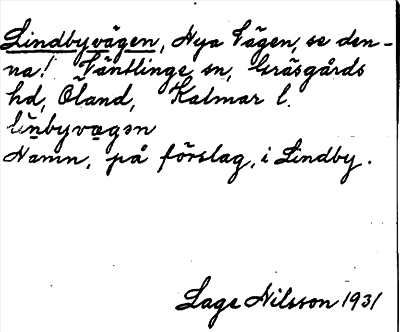 Lindbyvägen, Nya Vägen, se den-
na! Ventlinge sn, Gräsgårds
hd, Öland, Kalmar l.
linbyvägen
Namn, på förslag, i Lindby.
Lage Nilsson 1931